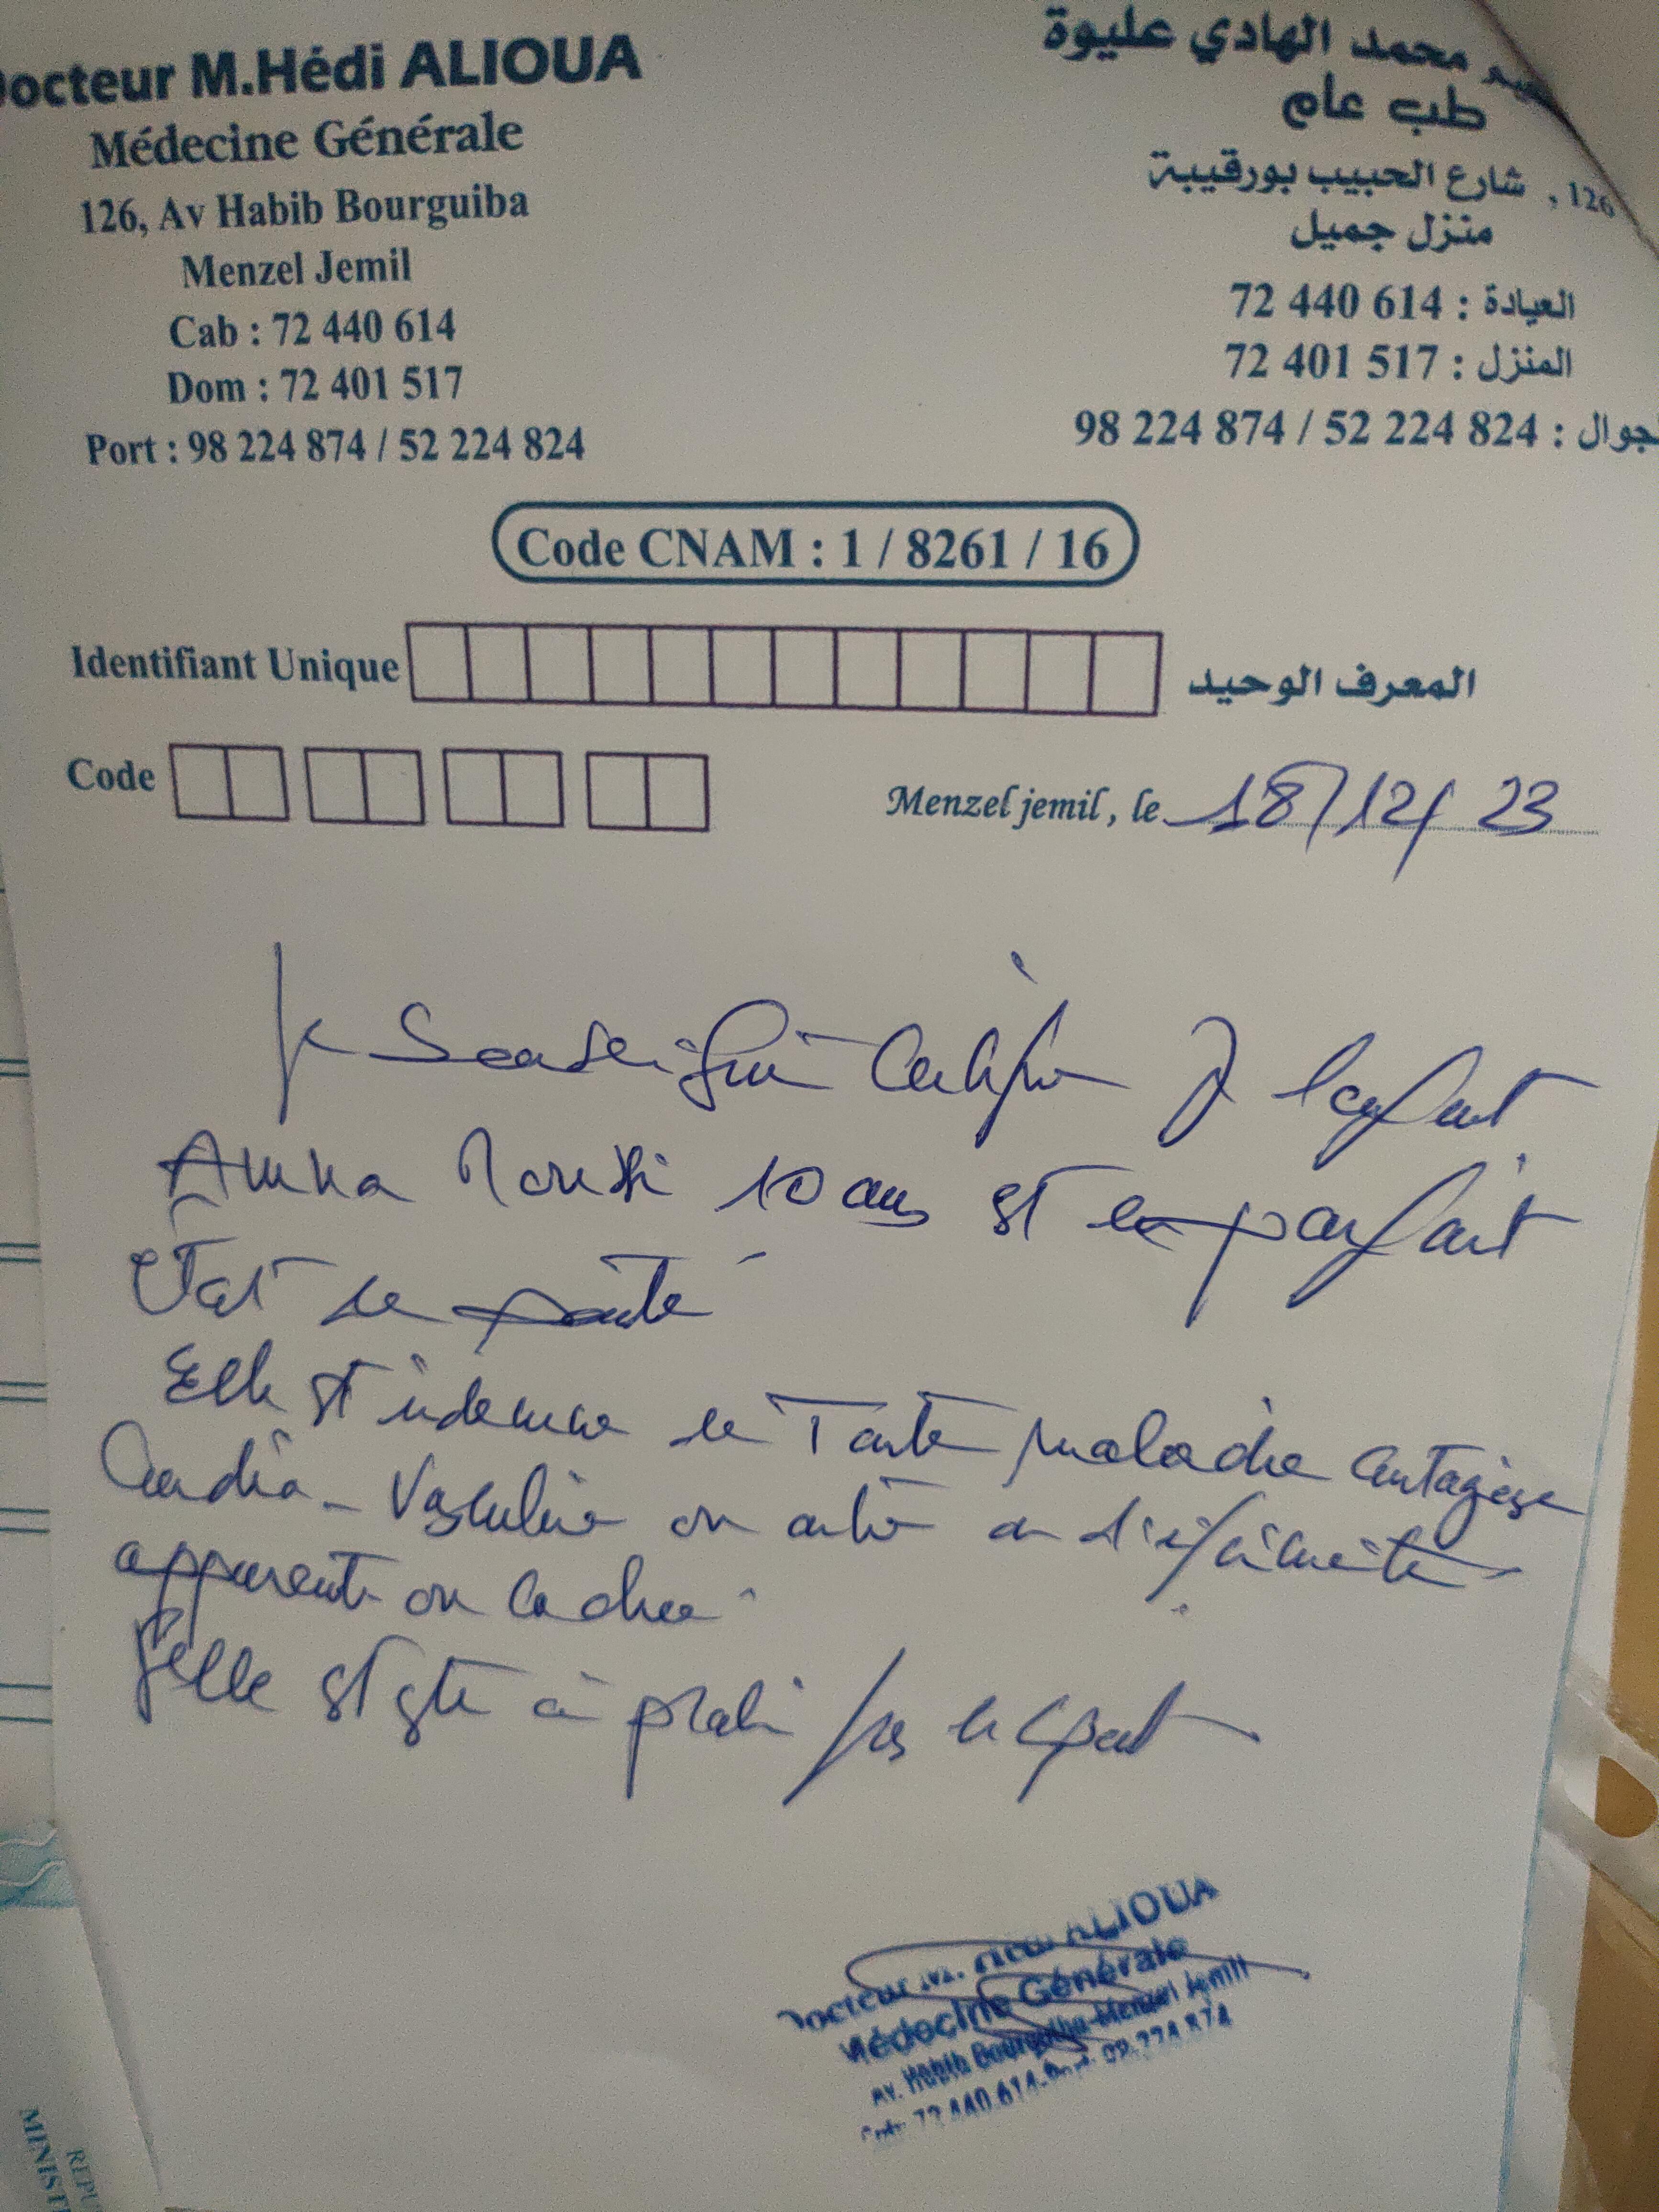 Docteur M.Hédi ALIOUA
Médecine Générale
126, Av Habib Bourguiba
Menzel Jemil
Cab : 72 440 614
Dom : 72 401 517
Port : 98 224 874 / 52 224 824
محمد الهادي عليوة
طب عام
126 , شارع الحبيب بورقيبة
منزل جميل
العيادة : 72 440 614
المنزل : 72 401 517
الجوال : 98 224 874 / 52 224 824
Code CNAM : 1 / 8261 / 16
Identifiant Unique
المعرف الوحيد
Code
Menzel jemil, le 18/12/23
Je soussigné certifie q l'enfant
Amna 10 ans est en parfait
état de santé
Elle est indemne de toute maladie contagieuse
Cardio-Vasculaire ou autre ou d'infirmité
apparente ou cachée
elle est apte à pratiquer le sport
ALIOUA
Médecine Générale
Av. Habib Bourguiba-Menzel Jemil
72.440.614
MINIST
REPU